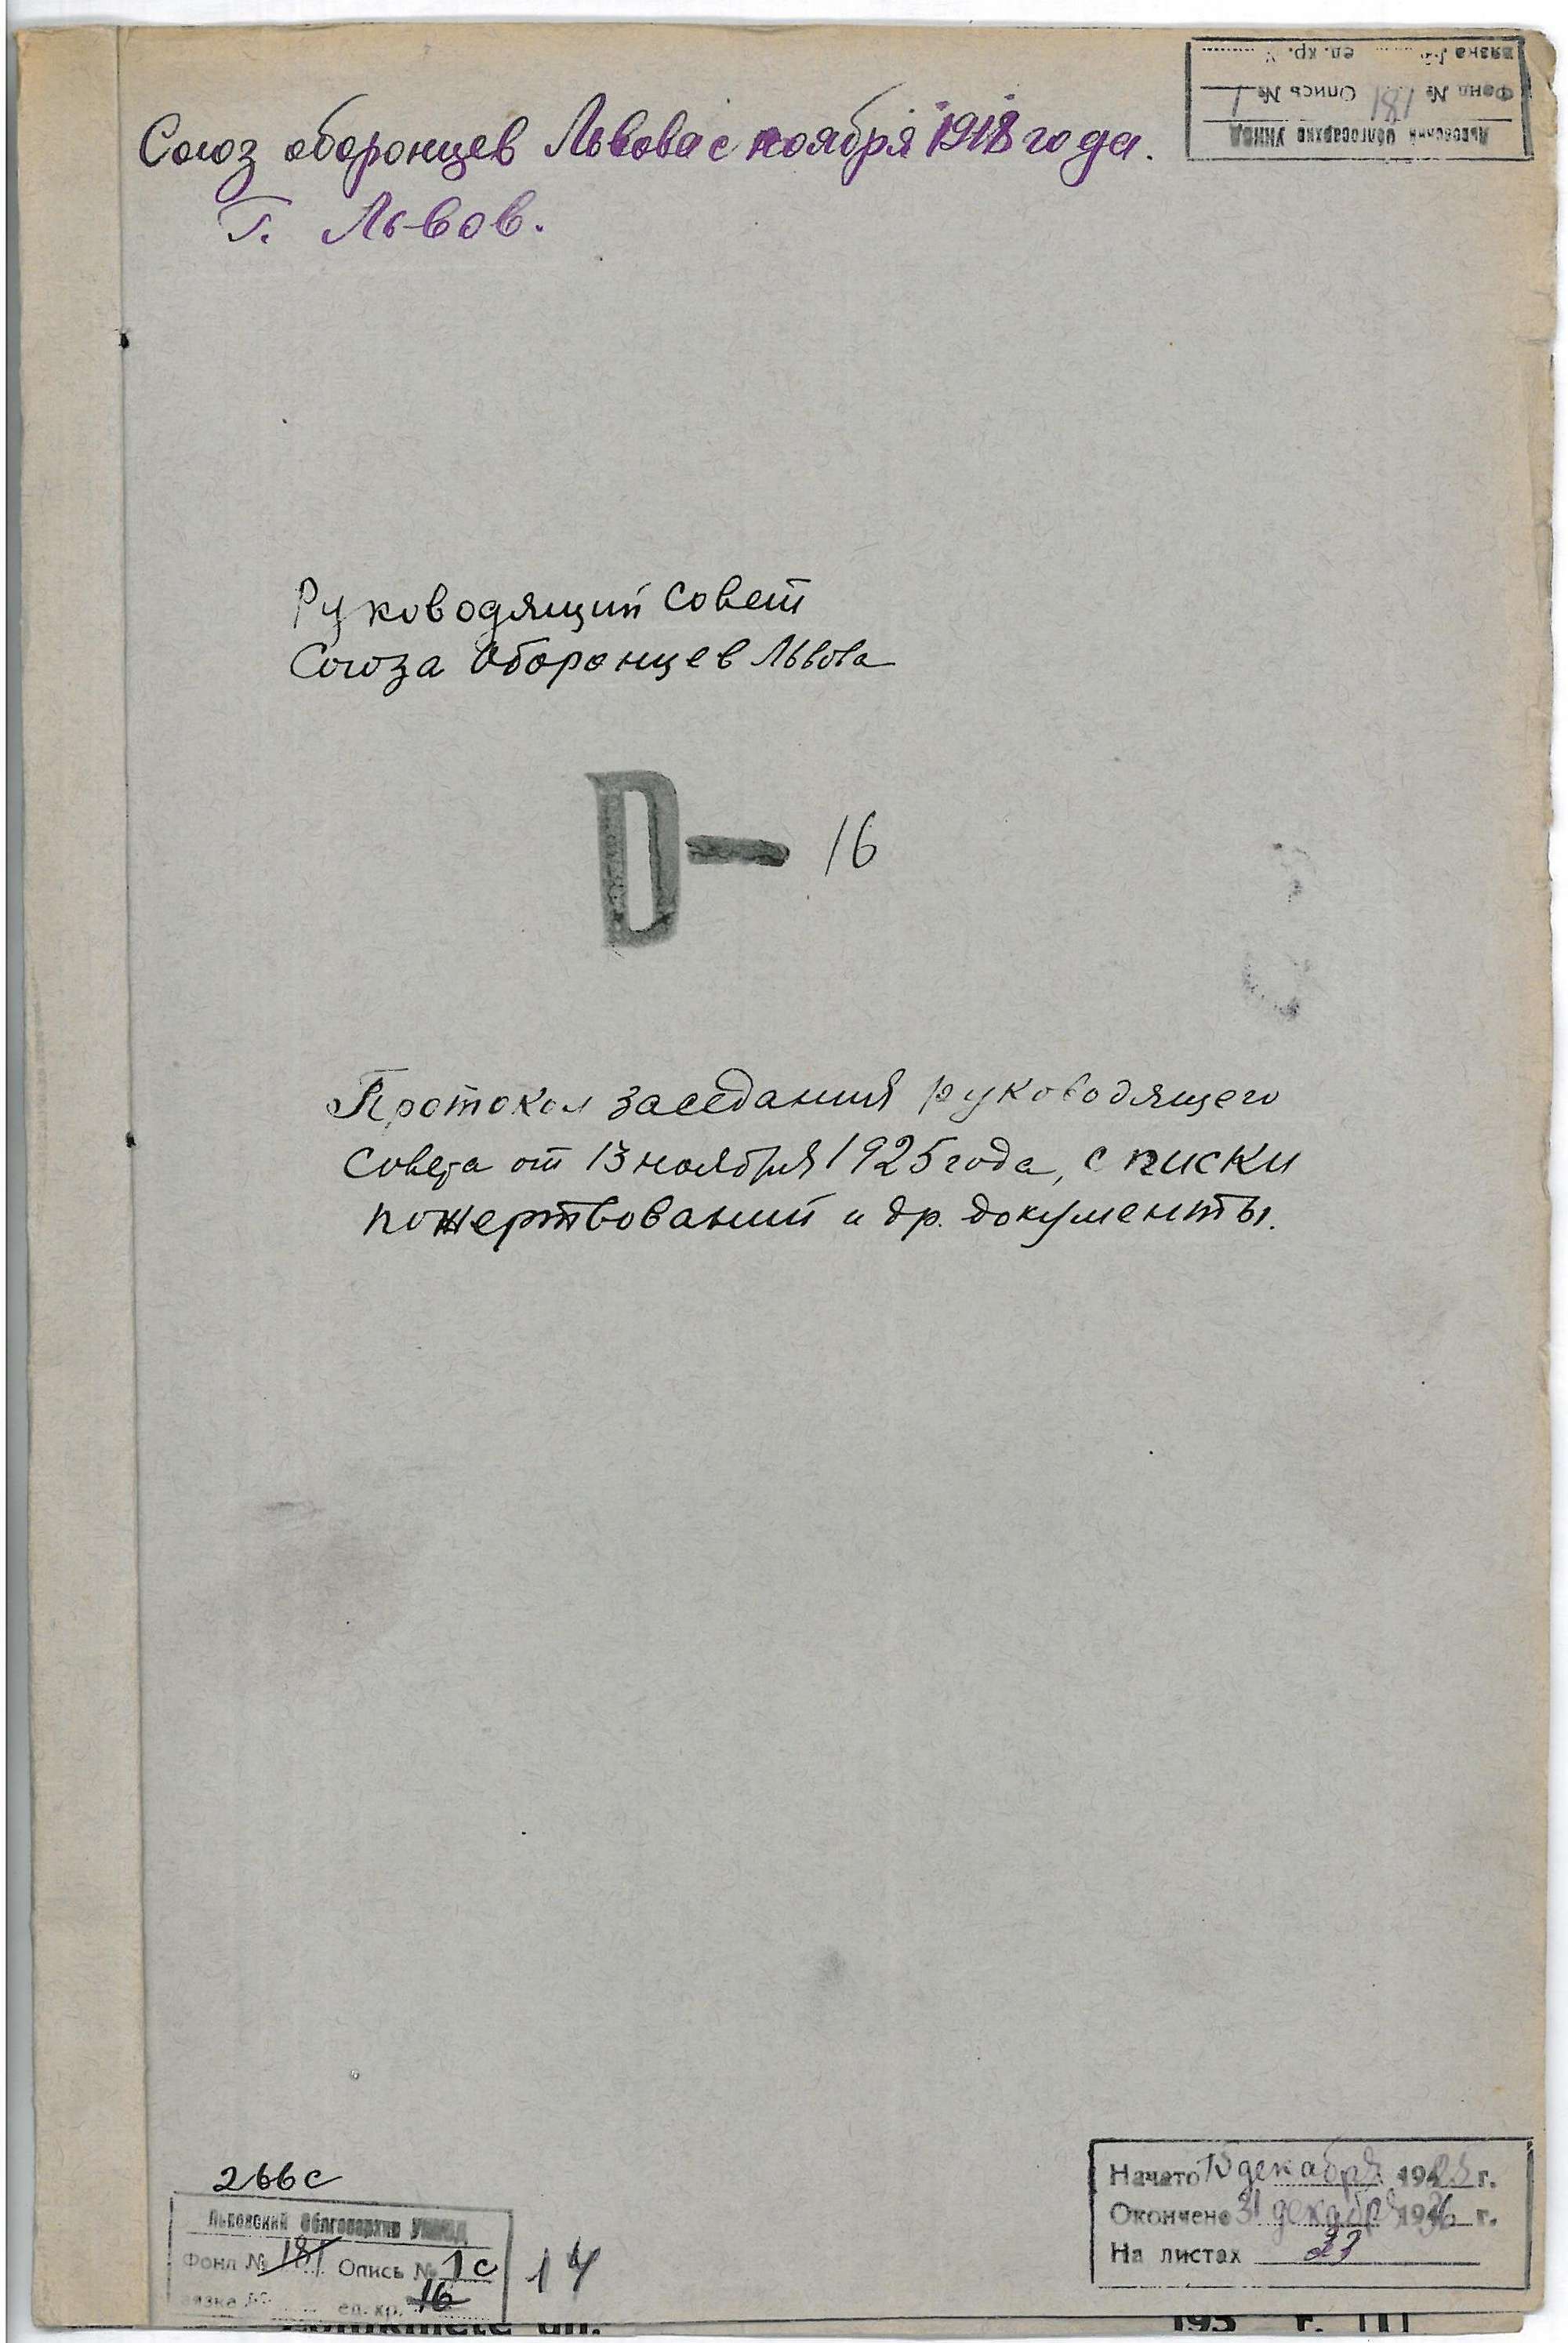 вязка № ед. хр.
Фонд № 181 Опись № 1
Львовский Облгосархив УНКВД
Союз оборонцев Львова с ноября 1918 года.
Г. Львов.
Руководящий совет
Союза Оборонцев Львова
D— 16
Протокол заседания руководящего
совета от 13 ноября 1925 года, списки
пожертвований и др. документы.
266с
Львовский Облгосархив УНКВД
Фонд № 181 Опись № 1с
вязка № ед. хр. 16
14
Начато 13 декабря 192 г.
Окончено 31 декабря 19 6 г.
На листах 23
193 г.